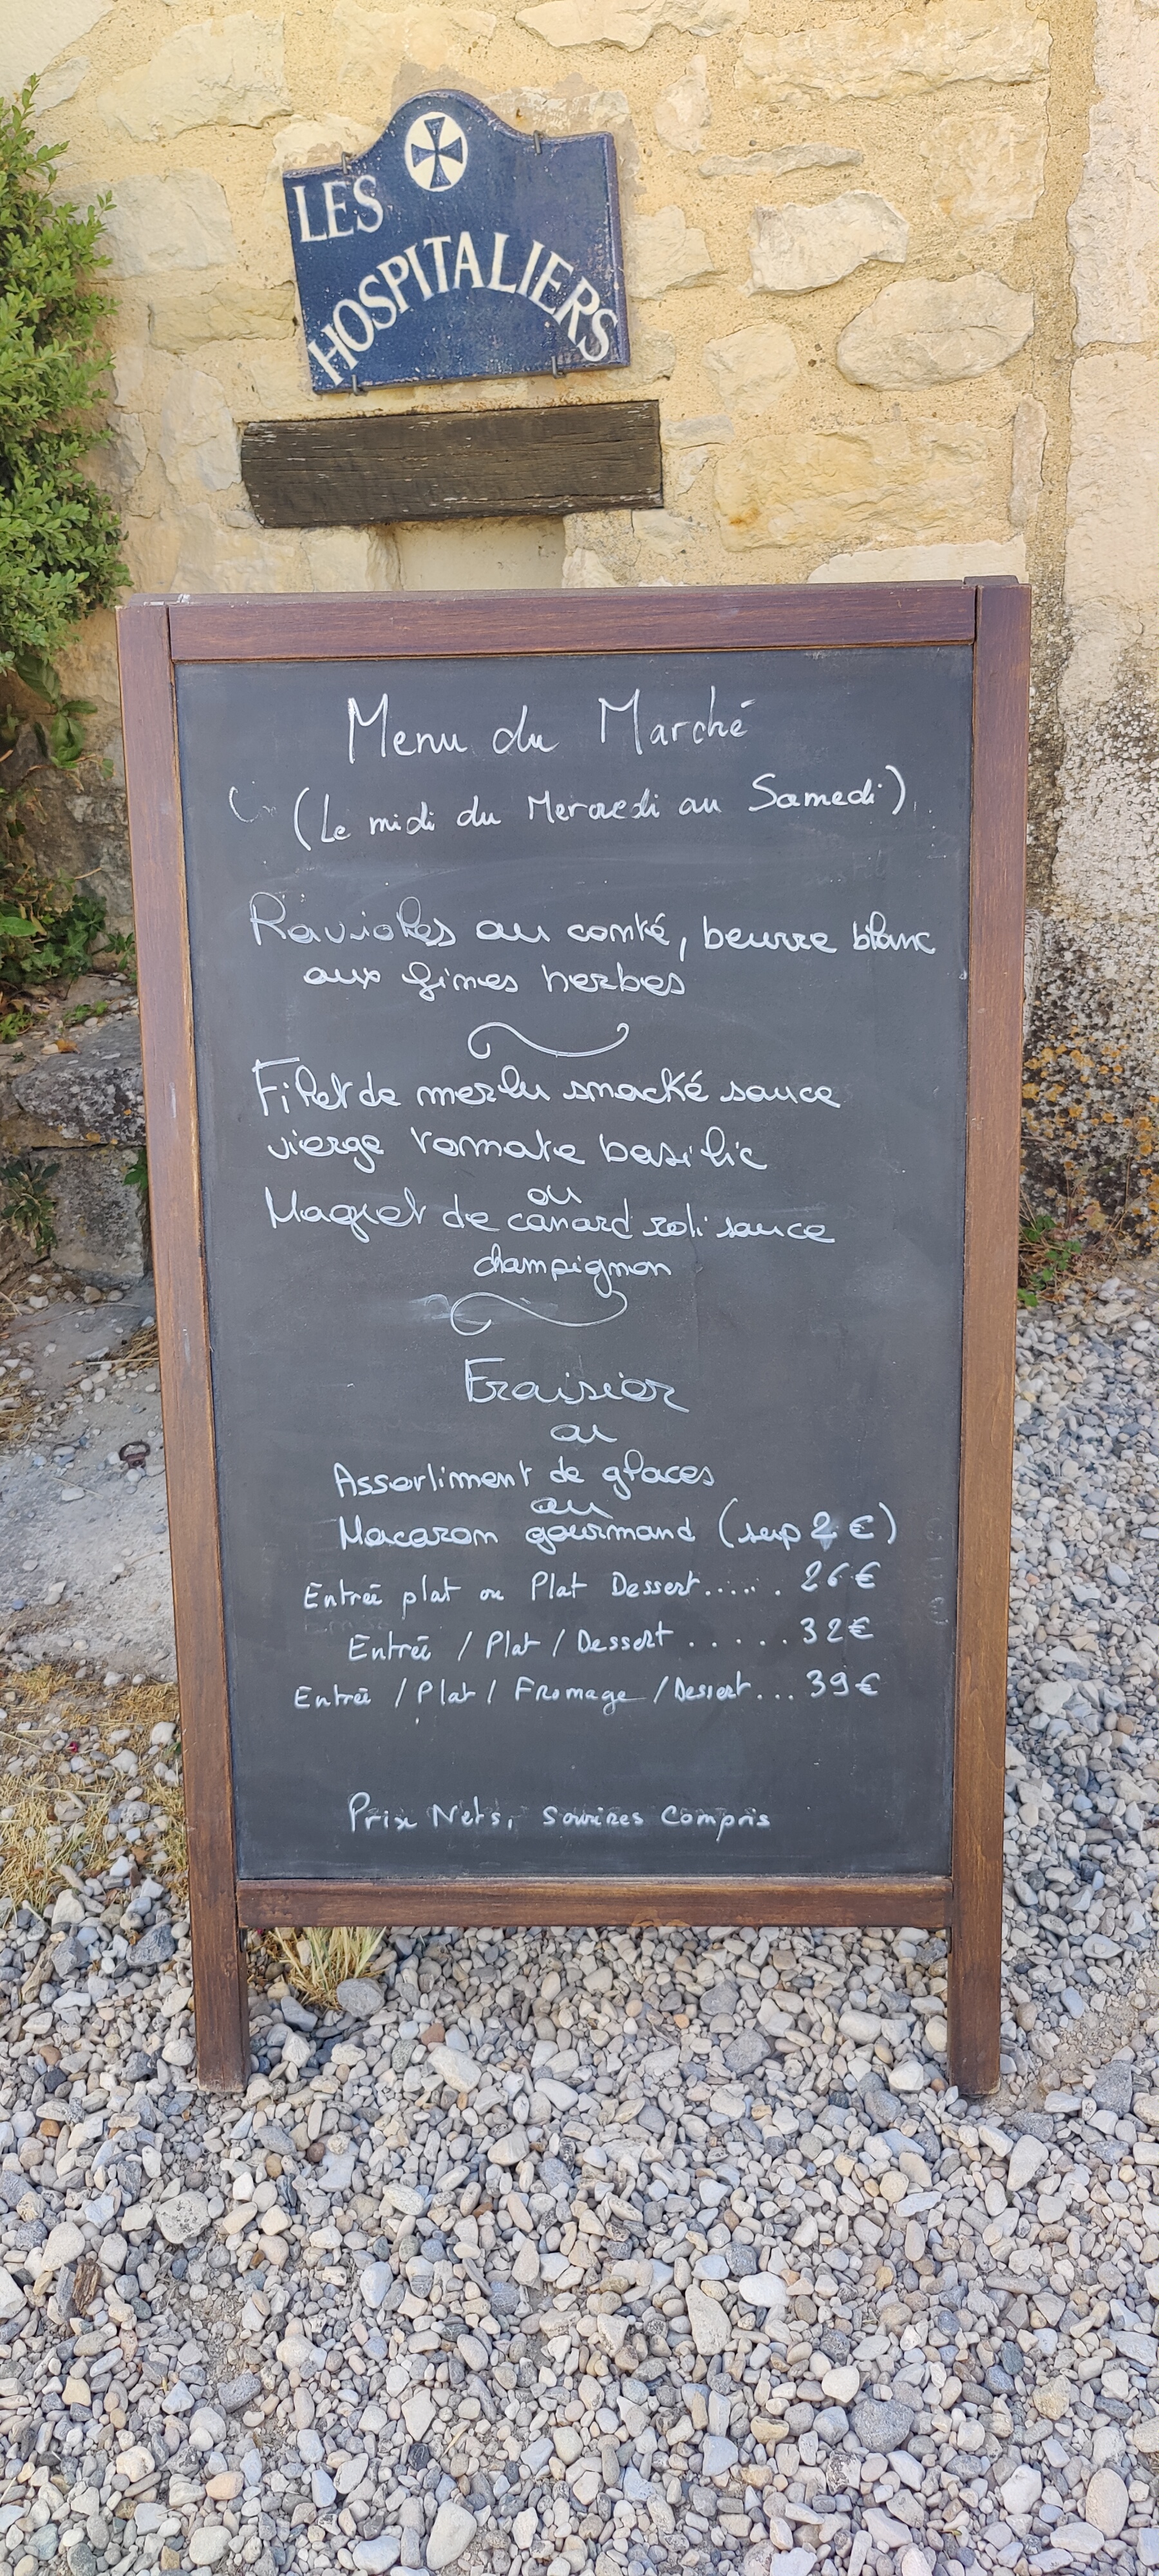 LES
HOSPITALIERS
Menu du Marché
(Le midi du Mercredi au Samedi)
Ravioles au comté, beurre blanc
aux fines herbes
Filet de merlu snacké sauce
vierge tomate basilic
ou
Magret de canard roti sauce
champignon
Fraisier
ou
Assortiment de glaces
ou
Macaron gourmand (sup 2 €)
Entrée plat ou Plat Dessert...... 26€
Entrée / Plat / Dessert ..... 32€
Entrée / Plat / Fromage / Dessert... 39€
Prix Nets, sourires Compris